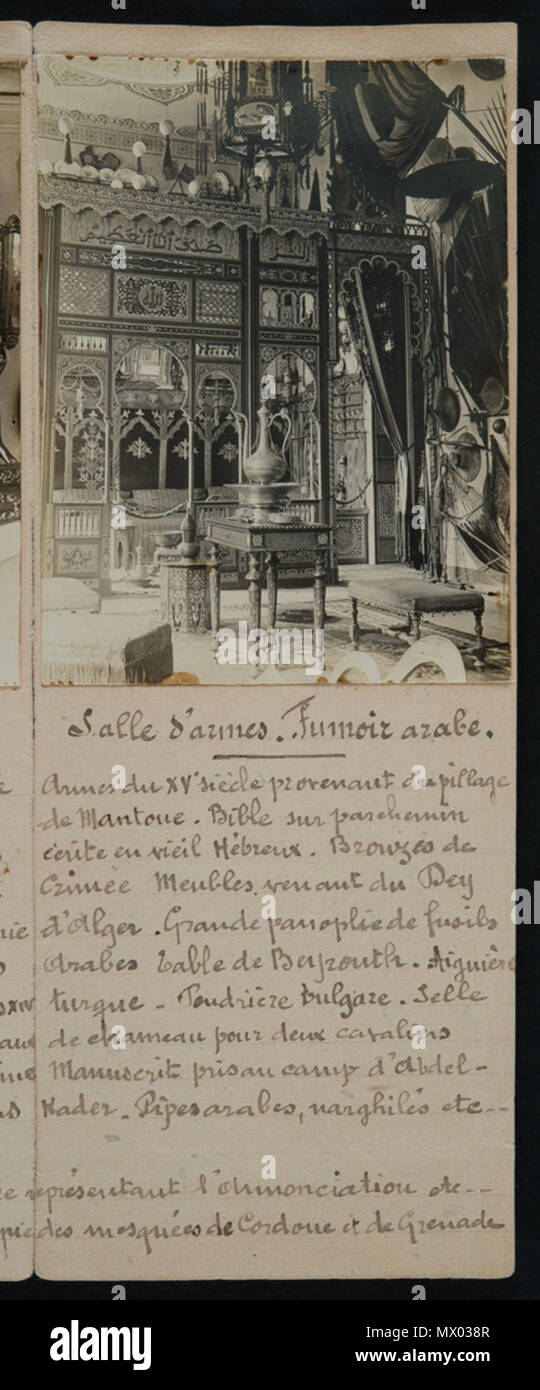 صدق الله العظيم
الله
Salle d'armes. Fumoir arabe.
Armes du XVe siècle provenant du pillage
de Mantoue. Bible sur parchemin
écrite en vieil Hébreux. Bronzes de
Crimée Meubles venant du Dey
nie d'Alger. Grande panoplie de fusils
Arabes Table de Beyrouth. Aiguière
XIV turque - Poudrière bulgare. Selle
aux de chameau pour deux cavaliers
ine Manuscrit pris au camp d'Abdel-
Kader. Pipes arabes, narghilés etc--
re représentant l'Annonciation etc--
pie des mosquées de Cordoue et de Grenade
a alamy
alamy
Image ID: MX038R
www.alamy.com